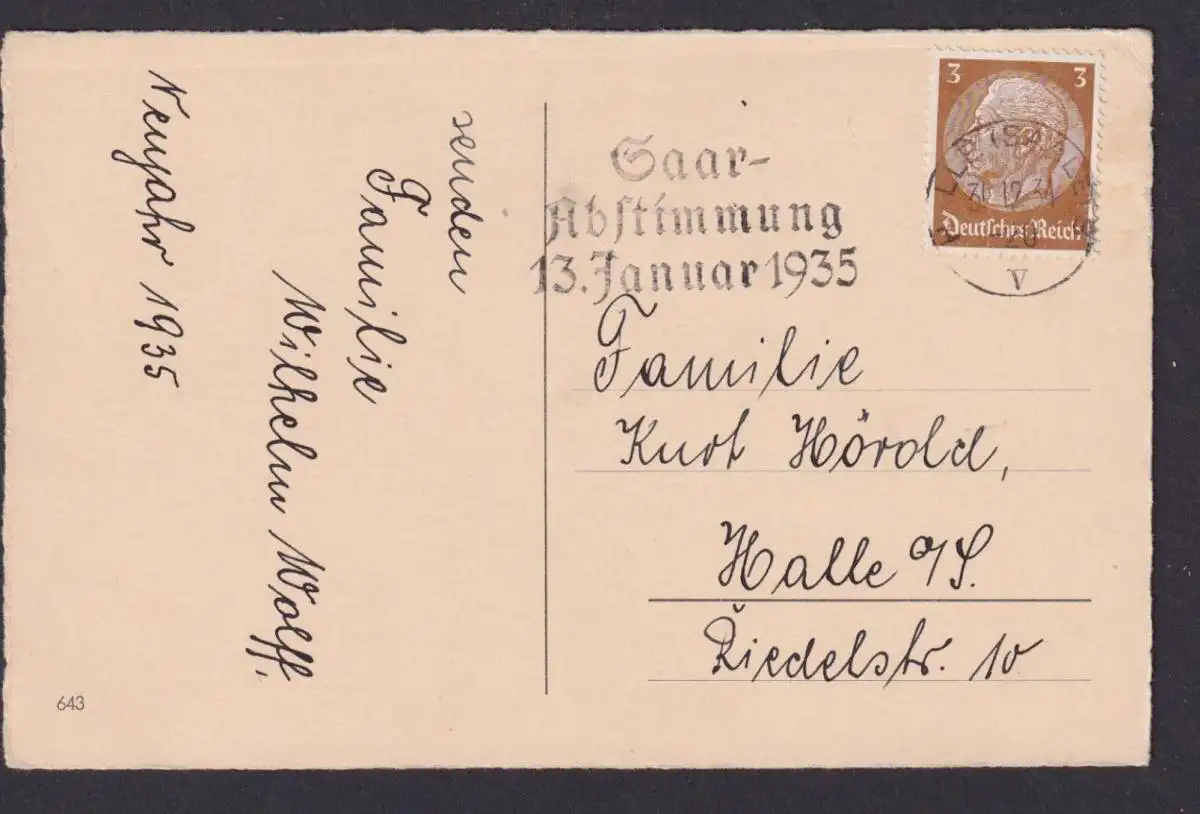 senden
Familie
Wilhelm Wolff.
Neujahr 1935
643
Saar-
Abstimmung
13. Januar 1935
3 3
Deutsches Reich
(SAALE)
31.12.34
V
Familie
Kurt Hörold,
Halle a/S.
Riedelstr. 10